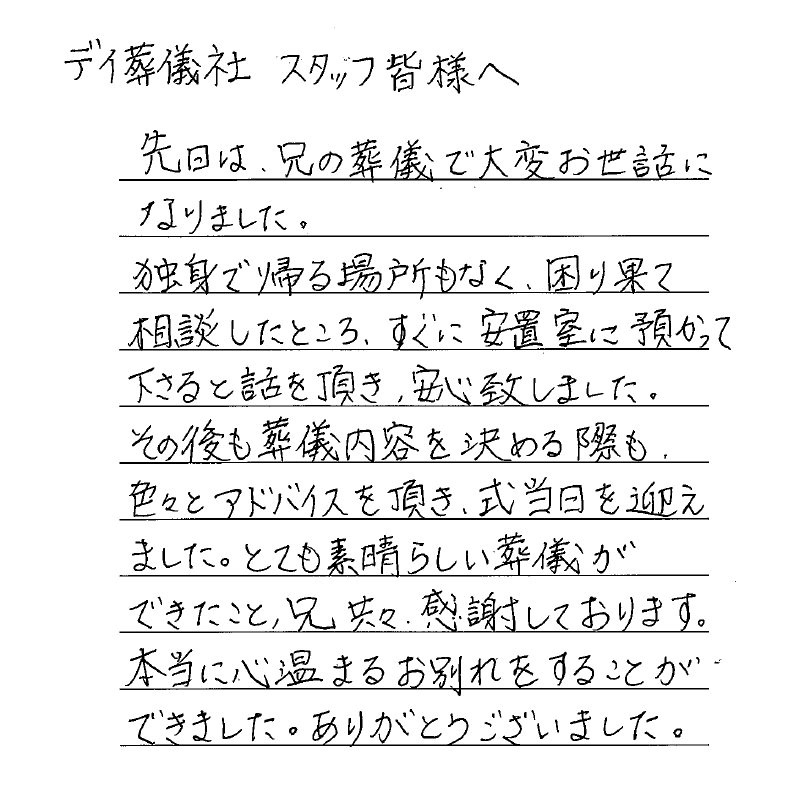 デイ葬儀社 スタッフ皆様へ
先日は、兄の葬儀で大変お世話に
なりました。
独身で帰る場所もなく、困り果て
相談したところ、すぐに安置室に預かって
下さると話を頂き、安心致しました。
その後も葬儀内容を決める際も、
色々とアドバイスを頂き、式当日を迎え
ました。とても素晴らしい葬儀が
できたこと、兄共々、感謝しております。
本当に心温まるお別れをすることが
できました。ありがとうございました。